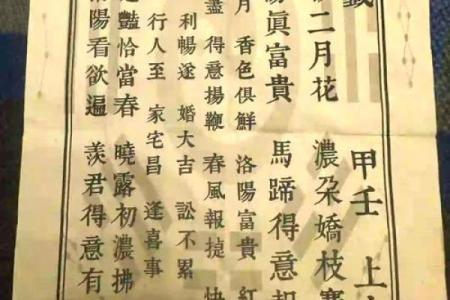 籤
甲壬 上
二月花 濃朵嬌枝
眞富貴 馬蹄得意
月 香色俱鮮 洛陽富貴 紅
盡 得意揚鞭 春風報捷 快
利暢遂 婚大吉 訟不累
行人至 家宅昌 逢喜事
豔恰當春 曉露初濃拂
陽看欲遍 羨君得意有